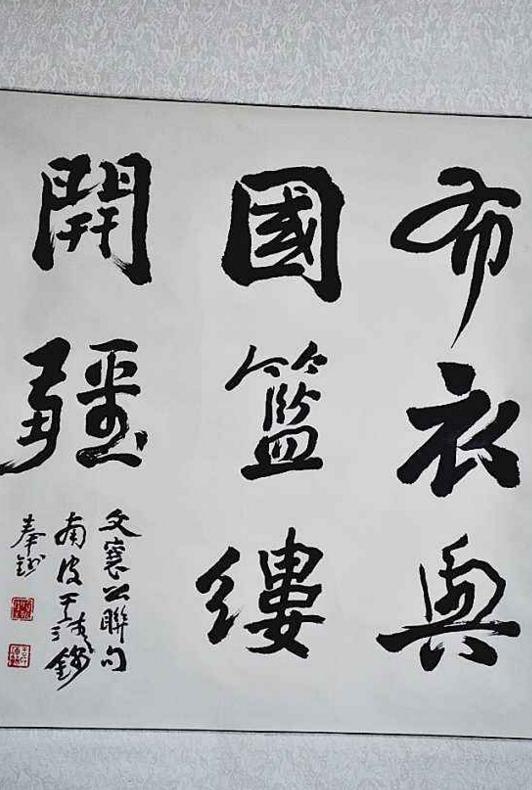 布衣興
國籃縷
開疆
文襄公聯句
南皮王
奉